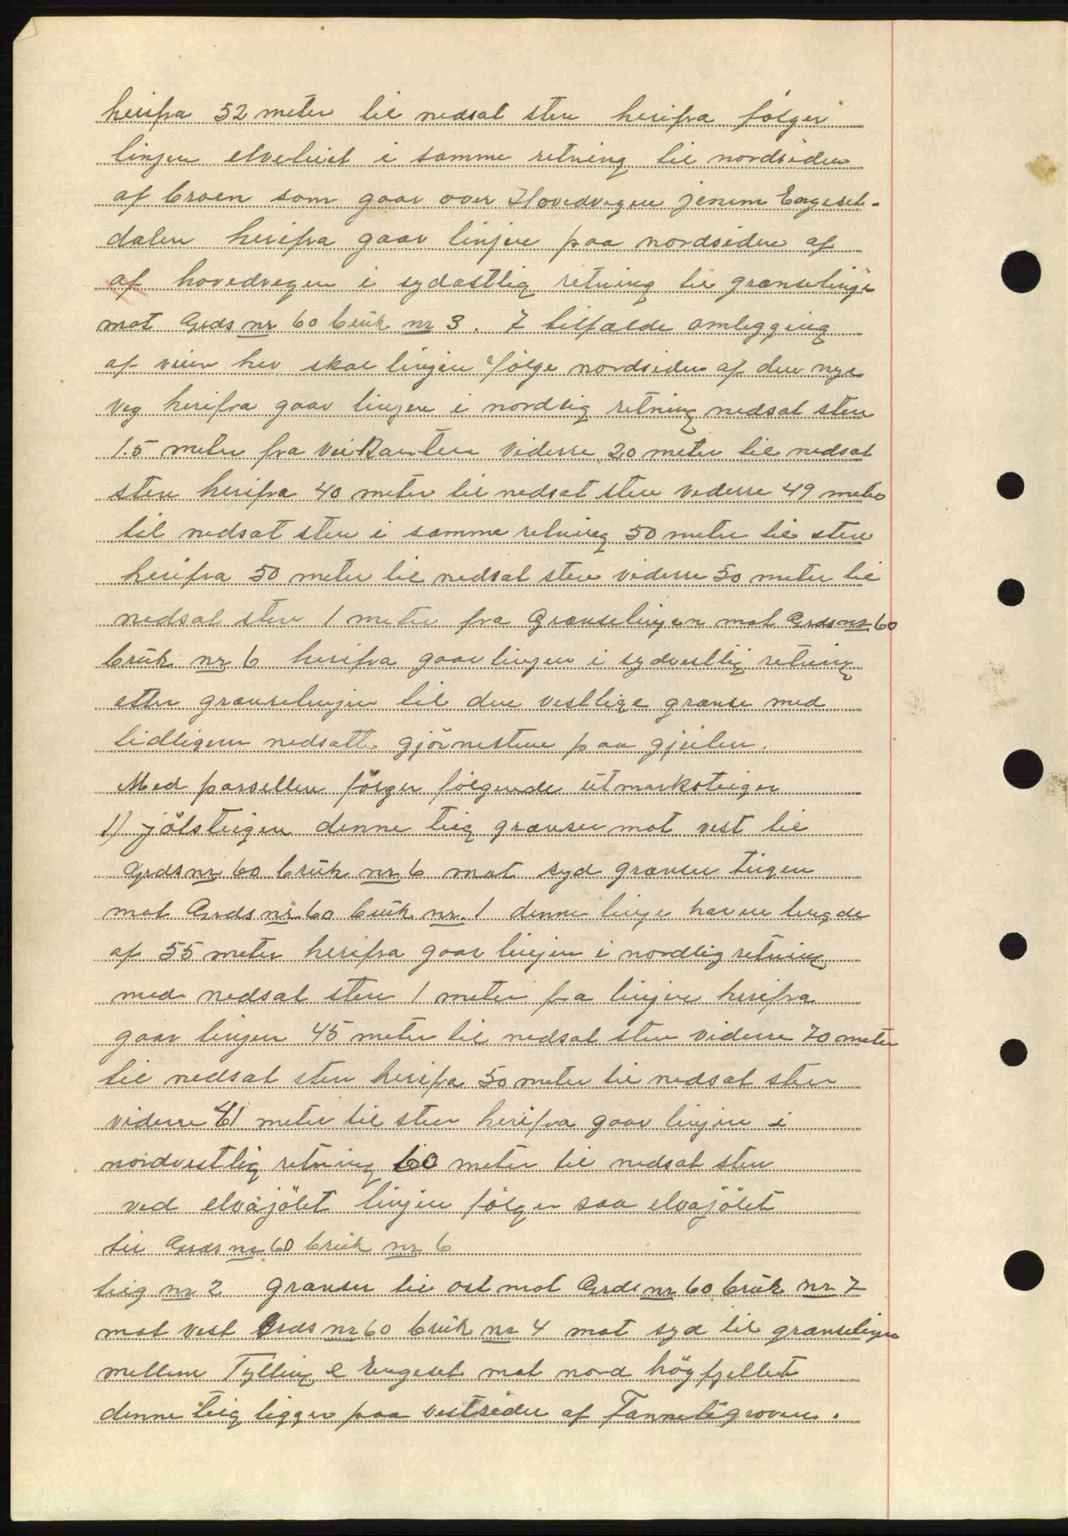 herifra 52 meter til nedsat sten herifra følger
linjen elveløiet i samme retning til nordsiden
af broen som gaar over Hovedvegen jenem Engeset-
dalen herifra gaar linjen paa nordsiden af
af hovedvegen i sydøstlig retning til grænselinje
mot Grds nr 60 brük nr 3. I tilfælde omlegging
af veien her skal linjen følge nordsiden af den nye
veg herifra gaar linjen i nordlig retning nedsat sten
1.5 meter fra veikanten viderre 20 meter til nedsat
sten herifra 40 meter til nedsat sten viderre 49 meter
til nedsat sten i samme retning 50 meter til sten
herifra 50 meter til nedsat sten viderre 50 meter til
nedsat sten 1 meter fra Grænselinjen mot Grds nr 60
brük nr 6 herifra gaar linjen i sydvestlig retning
etter grænselinjen til den vestlige grænse med
tidligere nedsatte gjörnestene paa gjeilen.
Med parsellen følger følgende ütmarksteiger
1) jölsteigen denne teig grænser mot vest til
Grds nr 60 brük nr 6 mot syd grænser teigen
mot Grds nr 60 brük nr. 1 denne linje har en lengde
af 55 meter herifra gaar linjen i nordlig retning
med nedsat sten 1 meter fra linjen herifra
gaar linjen 45 meter til nedsat sten viderre 70 meter
til nedsat sten herifra 50 meter til nedsat sten
viderre 41 meter til sten herifra gaar linjen i
nordvestlig retning 60 meter til nedsat sten
ved elvajölet linjen følger saa elvajölet
til Grds nr 60 brük nr 6
teig nr 2 grænser til øst mot Grds nr 60 brük nr 7
mot vest Grds nr 60 brük nr 4 mot syd til grænselinjen
mellem Tylling & Engeset mot nord högfjellet
denne teig ligger paa vestsiden af Tannetégroven.